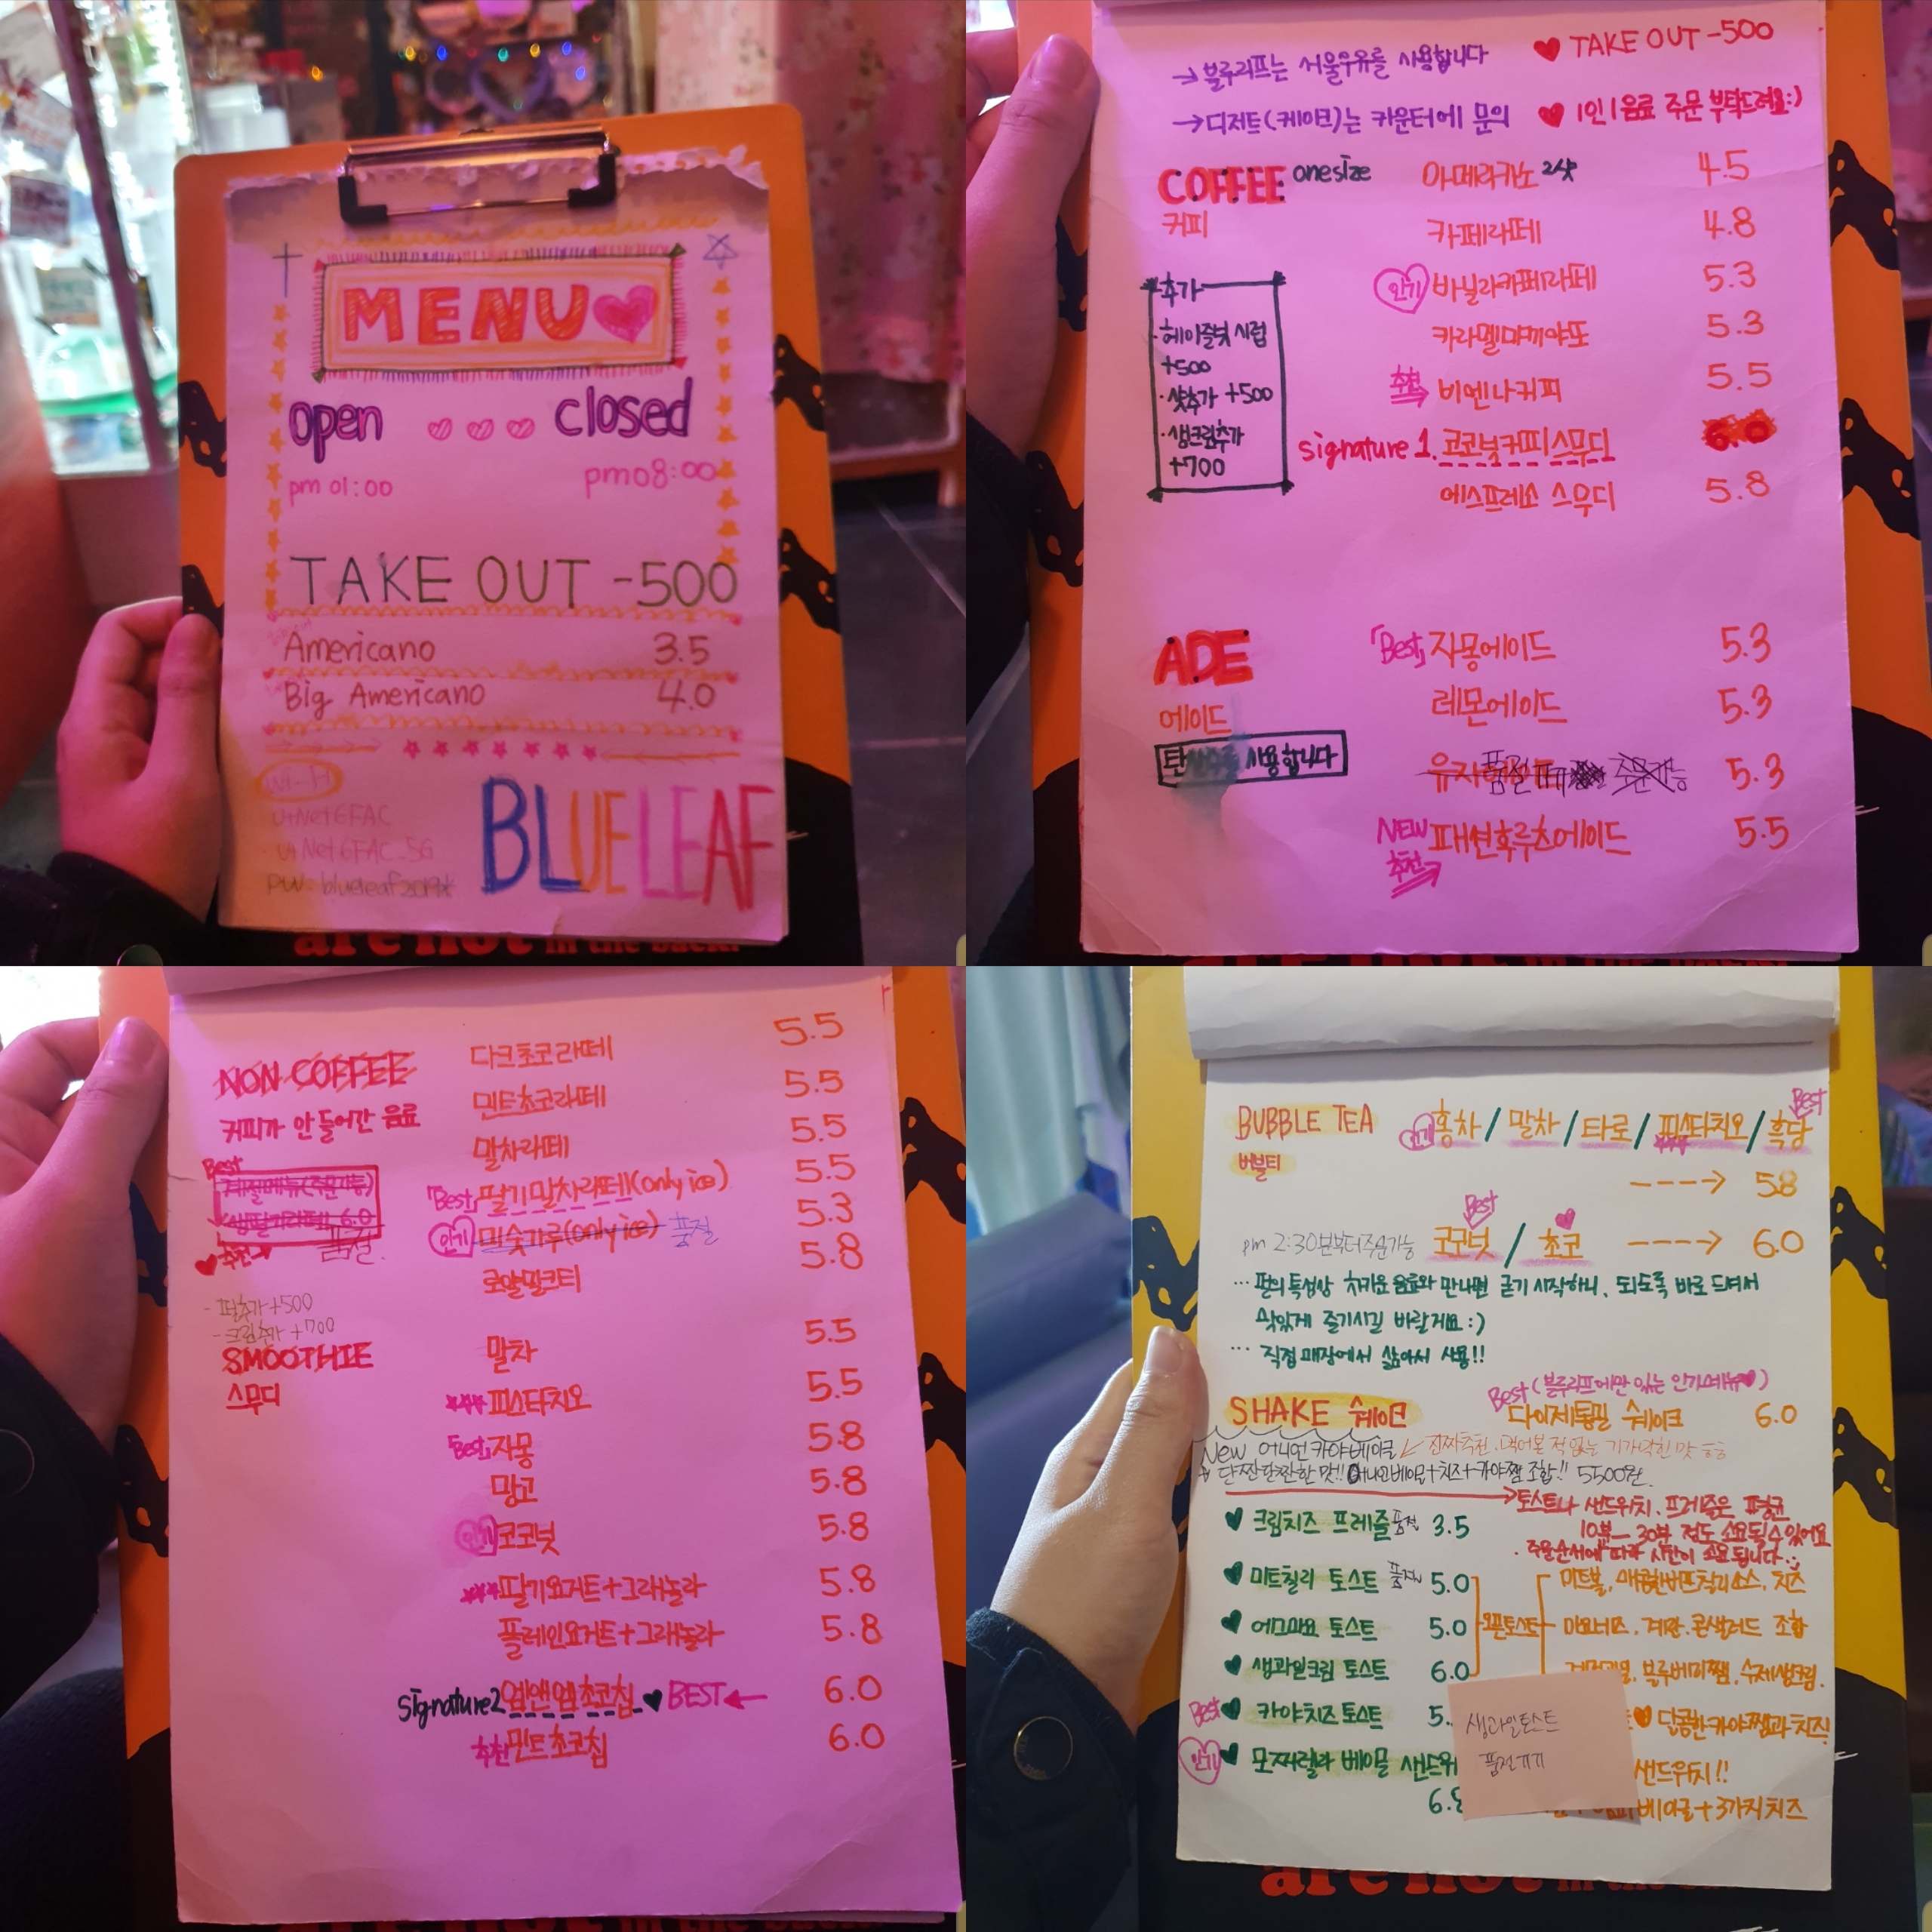 MENU
open closed
pm 01:00 pm 08:00
TAKE OUT -500
Americano 3.5
Big Americano 4.0
Wi-Fi
U+Net6FAC
U+Net6FAC_5G
PW: blueleaf2019*
BLUELEAF
are not in the back.
→ 블루리프는 서울우유를 사용합니다 ♥ TAKE OUT -500
→ 디저트(케이크)는 카운터에 문의 ♥ 1인 1음료 주문 부탁드려요:)
COFFEE onesize 아메리카노 2샷 4.5
커피
카페라떼 4.8
인기 바닐라카페라떼 5.3
카라멜마끼야또 5.3
추천 비엔나커피 5.5
signature 1. 코코넛커피스무디 6.0
에스프레소 스무디 5.8
추가
· 헤이즐넛 시럽
+500
· 샷추가 +500
· 생크림추가
+700
ADE 「Best」 자몽에이드 5.3
에이드 레몬에이드 5.3
탄산수를 사용합니다
유자 품절 5.3
NEW 패션후루츠에이드 5.5
추천
NON COFFEE 다크초코라떼 5.5
커피가 안 들어간 음료 민트초코라떼 5.5
말차라떼 5.5
「Best」 딸기말차라떼(only ice) 5.5
인기 미숫가루(only ice) 품절 5.3
로얄밀크티 5.8
Best
계절메뉴(주문가능)
생딸기라떼 6.0
♥추천→ 품절
- 펄추가 +500
- 크림추가 +700
SMOOTHIE
스무디
말차 5.5
피스타치오 5.5
「Best」 자몽 5.8
망고 5.8
인기 코코넛 5.8
딸기요거트+그래놀라 5.8
플레인요거트+그래놀라 5.8
signature2 엠앤엠초코칩 ♥ BEST← 6.0
추천 민트초코칩 6.0
Best
BUBBLE TEA 인기 홍차 / 말차 / 타로 / 피스타치오 / 흑당
버블티
----> 5.8
Best
pm 2:30분부터주문가능 코코넛 / 초코 ----> 6.0
··· 펄의 특성상 차가운 음료와 만나면 굳기 시작하니, 되도록 바로 드셔서
맛있게 즐기시길 바랄게요 :)
··· 직접 매장에서 삶아서 사용!!
Best (블루리프에만 있는 인기메뉴♥)
SHAKE 쉐이크 다이제통밀 쉐이크 6.0
New 어니언 카야베이글 ✓ 진짜추천. 먹어본 적 없는 기가막힌 맛 ㅎㅎ
단짠단짠한 맛!! 어니언베이글+치즈+카야쨈 조합!! 5500원
→토스트나 샌드위치, 프레즐은 평균
10분 — 30분 정도 소요될수있어요
· 주문순서에 따라 시간이 소요됩니다
♥ 크림치즈 프레즐 품절 3.5
♥ 미트칠리 토스트 품절 5.0
미트볼, 매콤한버프칠리소스, 치즈
♥ 에그마요 토스트 5.0 오픈토스트 마요네즈, 계란, 콘샐러드 조합
♥ 생과일크림 토스트 6.0 블루베리쨈, 수제생크림.
Best ♥ 카야치즈 토스트 5. ♥ 달콤한카야쨈과 치즈!
인기 ♥ 모짜렐라 베이글 샌드위
샌드위치!!
6.8 베이글+3가지치즈
생과일토스트
품절ㅠㅠ
are not